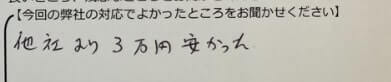 【今回の弊社の対応でよかったところをお聞かせください】
他社より3万円安かった